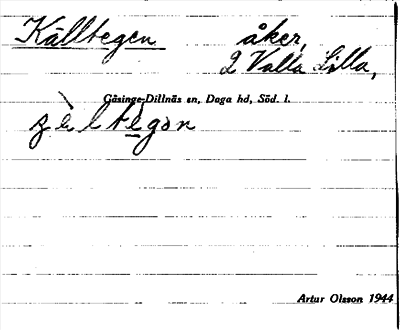 Källtegen åker,
2 Valla Lilla,
Gåsinge-Dillnäs sn, Daga hd, Söd. l.
Artur Olsson 1944